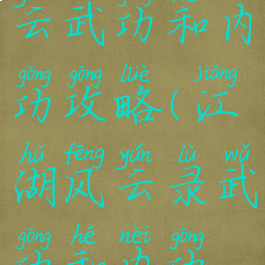 云武功和内
gōng gōng lüè jiāng
功攻略(江
hú fēng yún lù wǔ
湖风云录武
gōng hé nèi gōng
功和内功